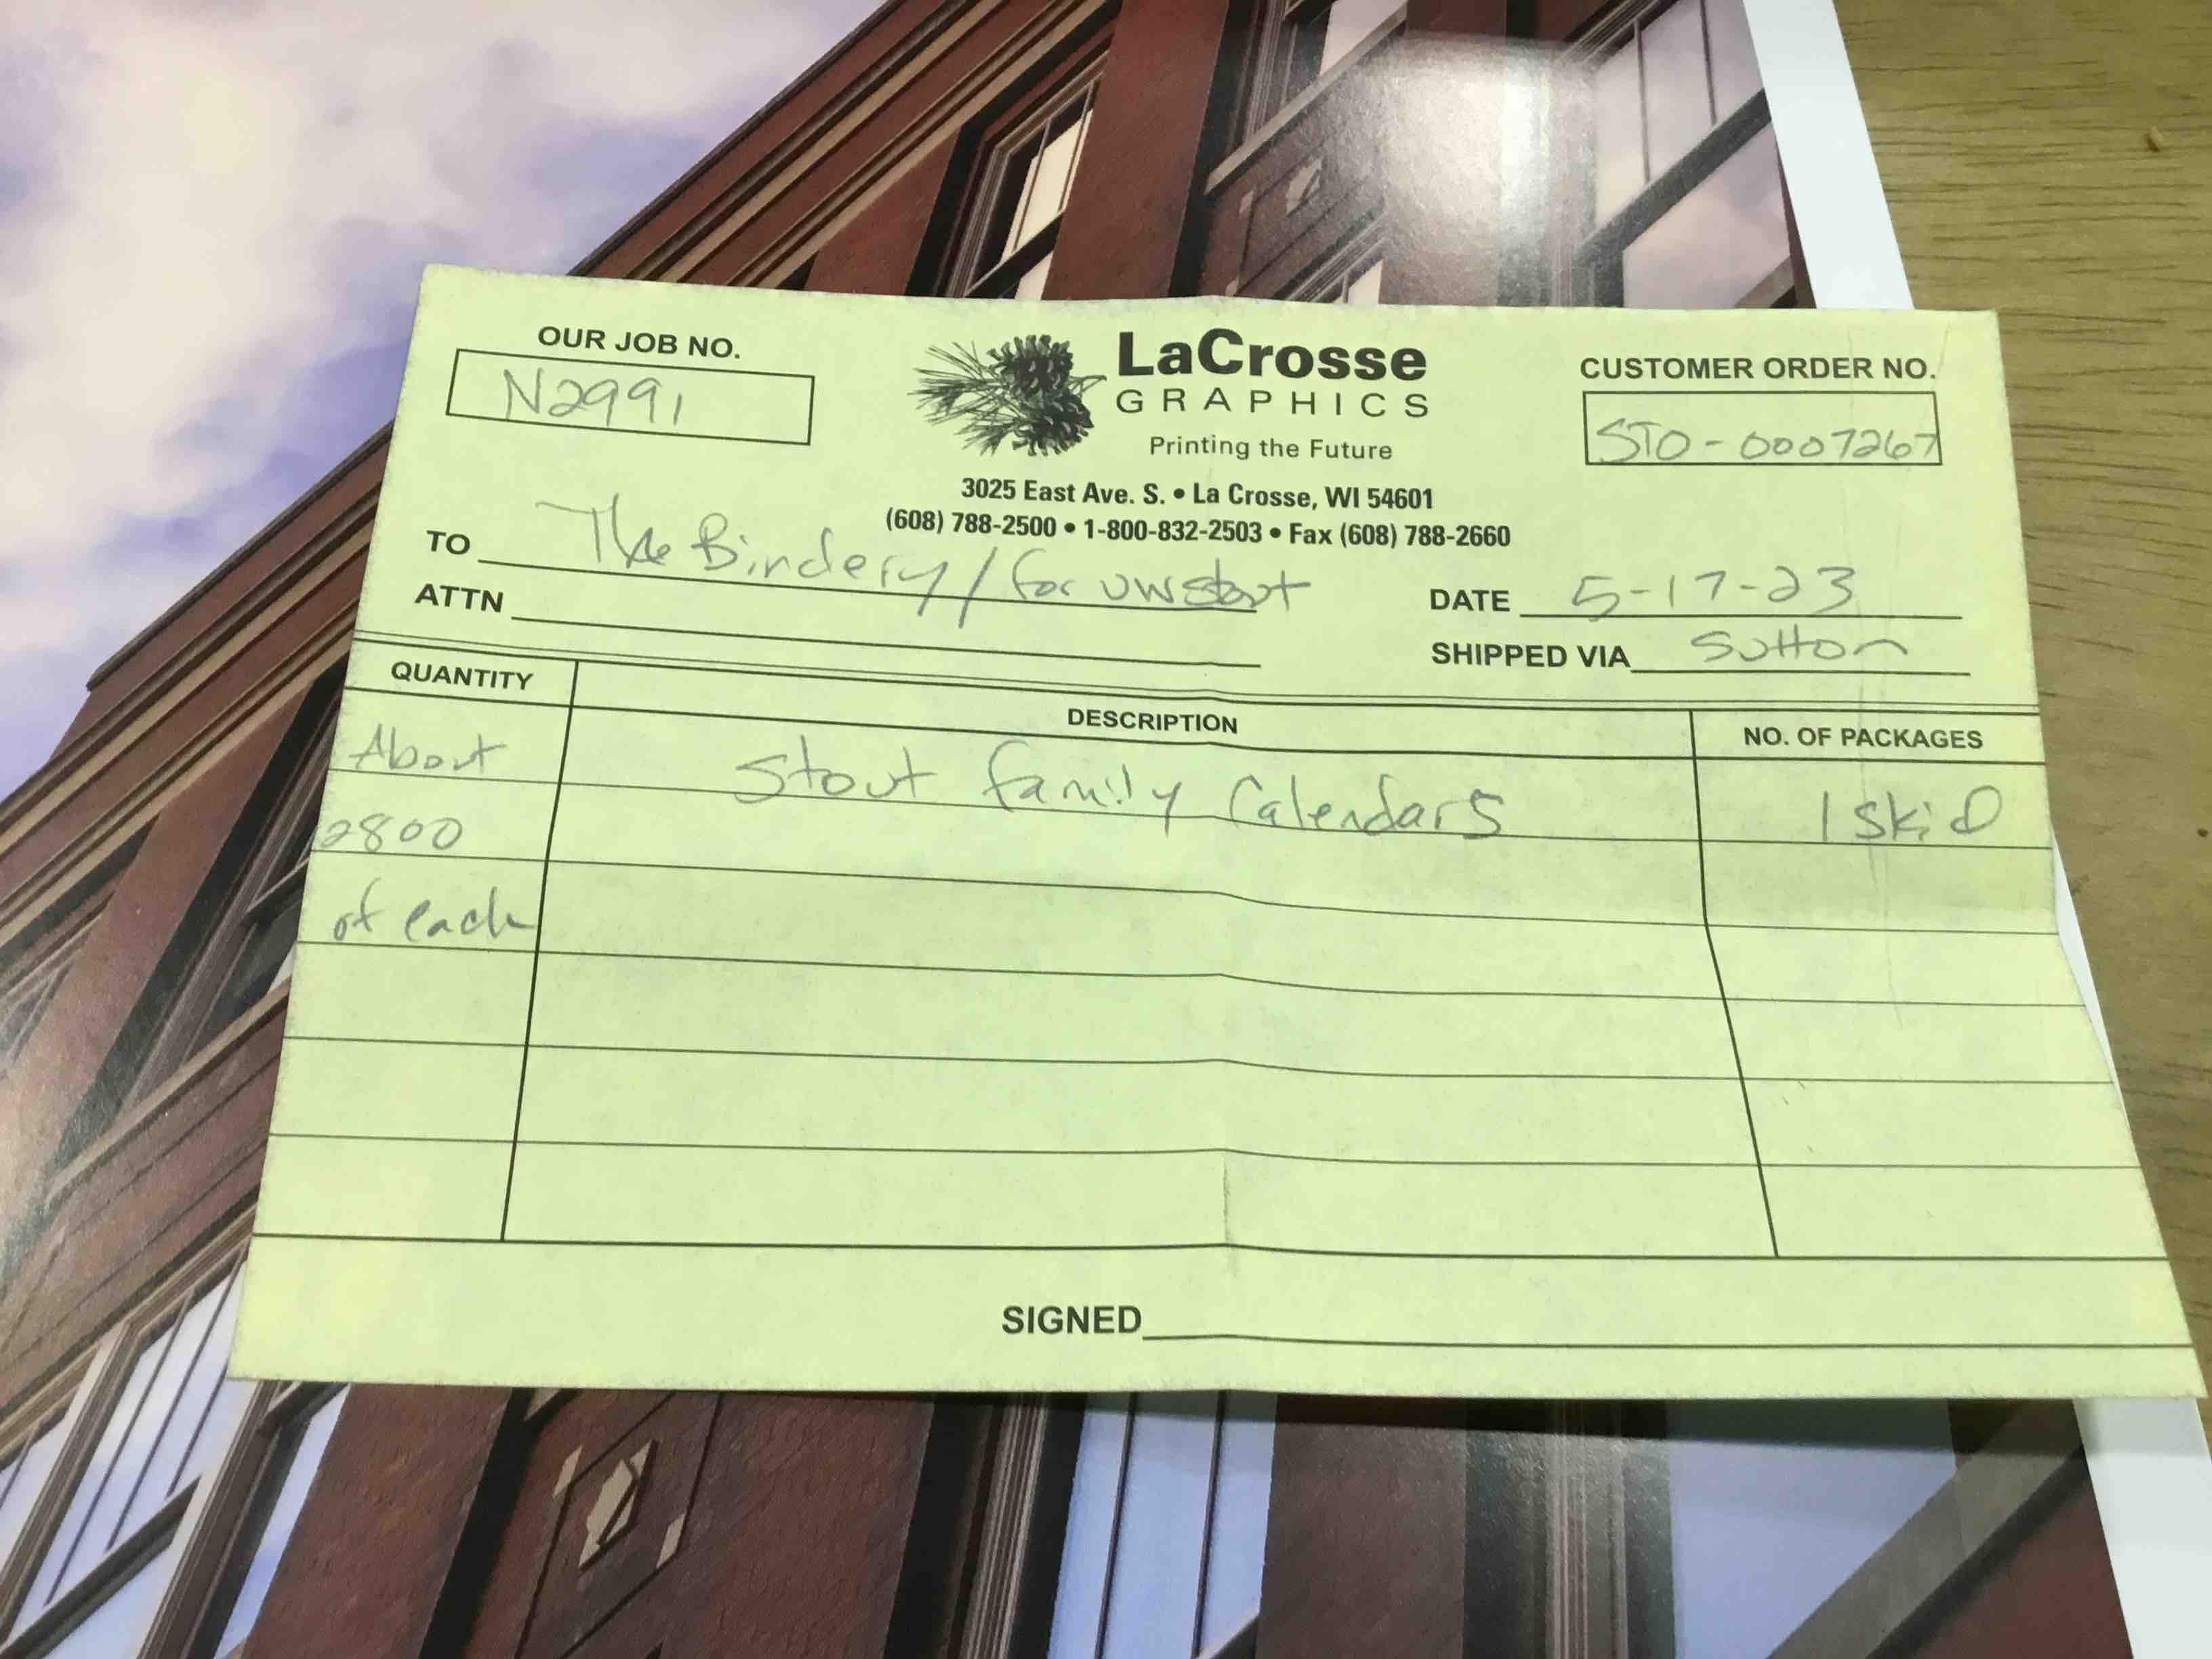 OUR JOB NO.
N2991
LaCrosse
GRAPHICS
Printing the Future
3025 East Ave. S. • La Crosse, WI 54601
(608) 788-2500 • 1-800-832-2503 • Fax (608) 788-2660
CUSTOMER ORDER NO.
STO-0007267
TO The Bindery / for UW Stout
ATTN
DATE 5-17-23
SHIPPED VIA Sutton
QUANTITY DESCRIPTION NO. OF PACKAGES
About Stout family Calendars 1 skid
2800
of each
SIGNED